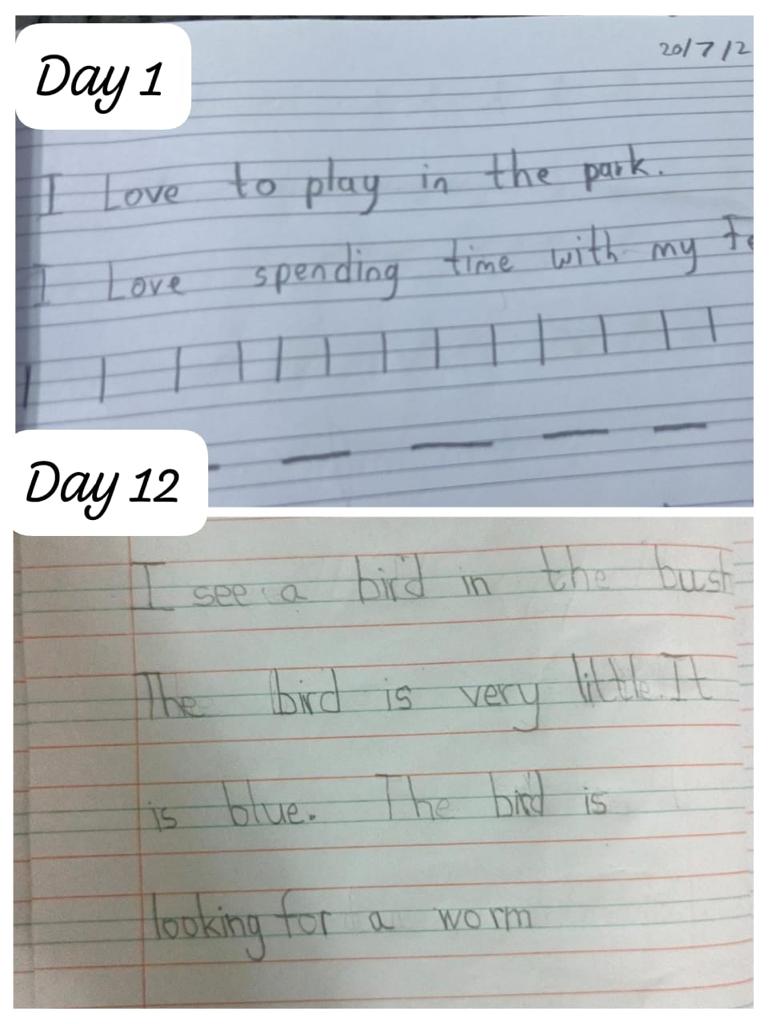 Day 1
20/7/2
I Love to play in the park.
I Love spending time with my Fa
Day 12
I see a bird in the bush
The bird is very little. It
is blue. The bird is
looking for a worm